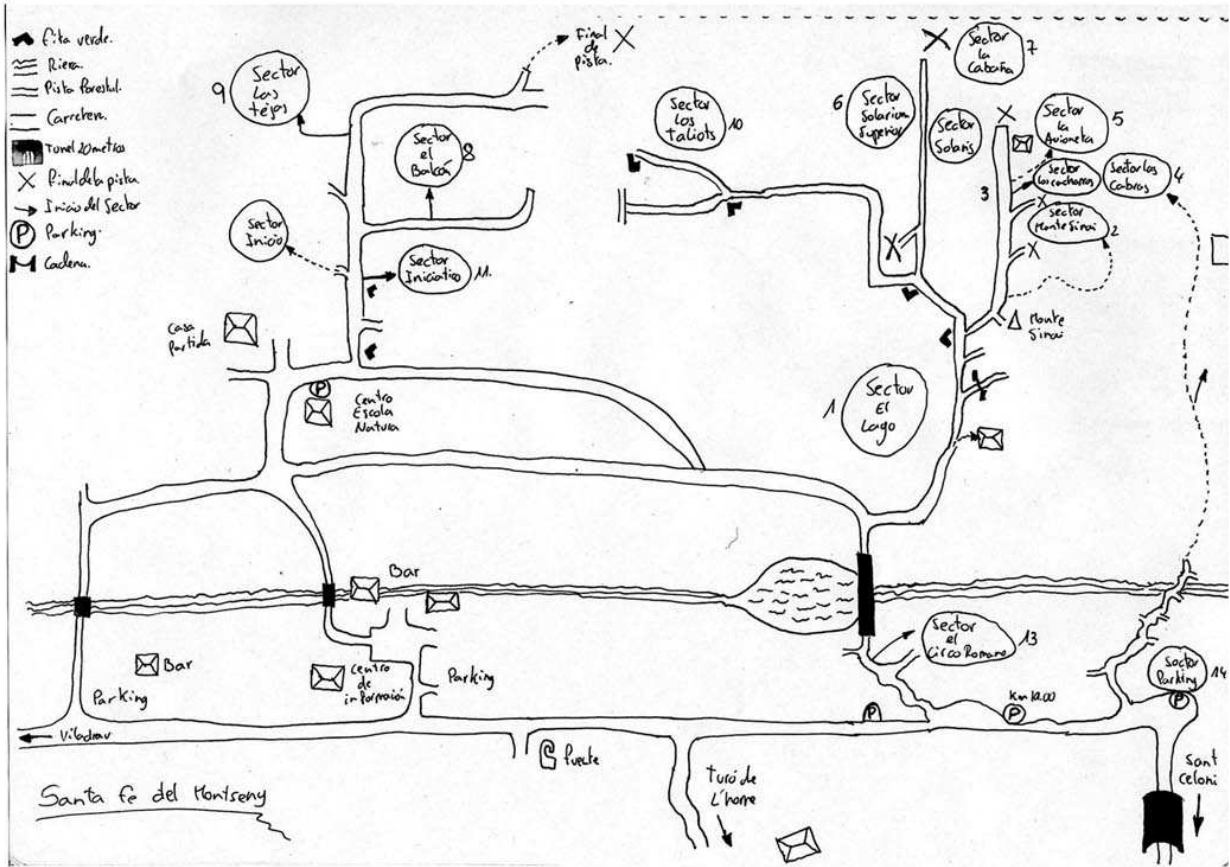 Fita verde.
Riera.
Pista Forestal.
Carretera.
Tunel 20 metros
Final de la pista
Inicio del Sector
P Parking.
Cadena.
9
Sector
Las
tejas
Final
de
pista.
Sector
el
Balcón
8
Sector
Inicio
Sector
Iniciatico
11.
Casa
Partida
P
Centro
Escola
Natura
Sector
Los
Taliots
10
6
Sector
Solarium
Superior
Sector
Solaris
Sector
la
Cabaña
7
Sector
la
Avioneta
5
3
Sector
Sector las
Cabras
4
Sector
Monte Sinai
2
Monte
Sinai
1
Sector
El
Lago
Bar
Bar
Parking
Centro
de
información
Parking
Sector
el
Circo Romano
13
P
Km 19.00
P
Sector
Parking
14
P
Viladrau
Turó de
L'home
Sant
Celoni
Santa fe del Montseny